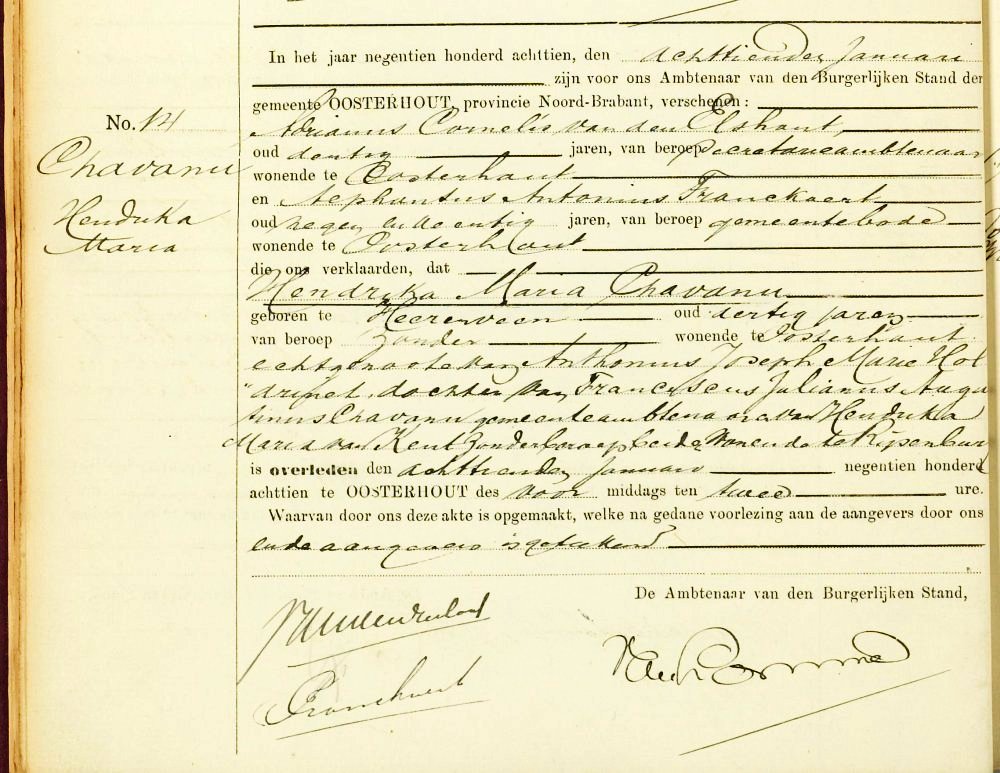 In het jaar negentien honderd achttien, den achttienden Januari
zijn voor ons Ambtenaar van den Burgerlijken Stand der
gemeente OOSTERHOUT, provincie Noord-Brabant, verschenen:
No. 14
Chavanu
Hendrika
Maria
Adrianus Cornelis van den Elshout,
oud dertig jaren, van beroep Secretarieambtenaar
wonende te Oosterhout
en Antonius Franckaert
oud negen en dertig jaren, van beroep gemeentebode
wonende te Oosterhout
die ons verklaarden, dat
Hendrika Maria Chavanu
geboren te Heerenveen oud dertig jaren
van beroep zonder wonende te Oosterhout
echtgenoote van Anthonius Joseph Marie Hol
drinet, dochter van Franciscus Julianus Augu
tinus Chavanu gemeenteambtenaar en van Hendrika
Maria van Kent zonder beroep beide wonende te
is overleden den achttienden Januari negentien honderd
achttien te OOSTERHOUT des voor middags ten twee ure.
Waarvan door ons deze akte is opgemaakt, welke na gedane voorlezing aan de aangevers door ons
en de aangevers is geteekend
De Ambtenaar van den Burgerlijken Stand,